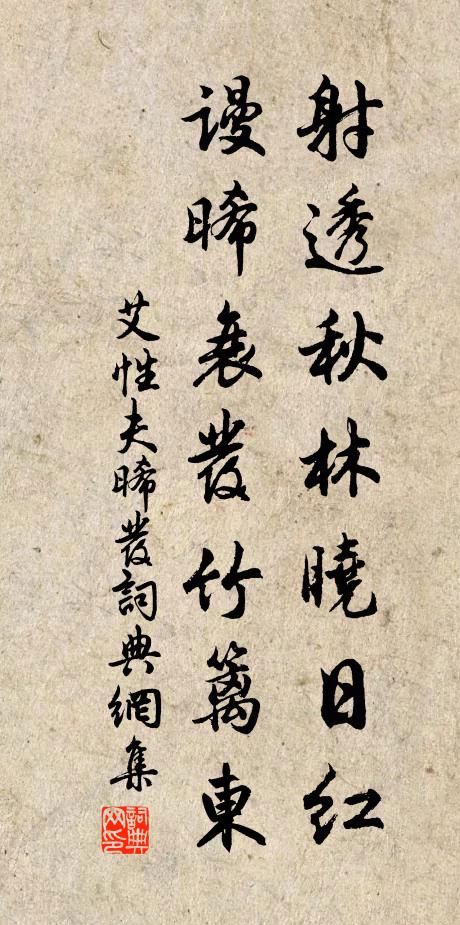 射透秋林曉日紅
謾晞衰發竹籬東
艾性夫晞發詞典網集
詞典网印